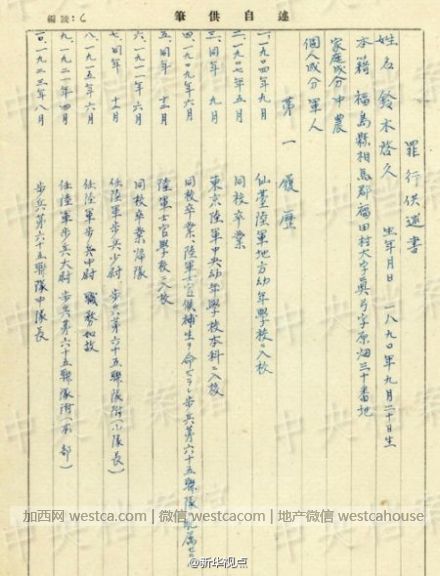 筆供自述
編號：6
罪行供述書
姓名 鈴木啓久 生年月日 一八九〇年九月二十日生
本籍 福島縣相馬郡福田村大字眞弓字原畑三十番地
家庭成分 中農
個人成分 軍人
第一 履歴
一、一九〇四年九月 仙臺陸軍地方幼年學校ニ入校
二、一九〇七年五月 同校卒業
三、同年 九月 東京陸軍中央幼年學校本科ニ入校
四、一九〇九年六月 同校卒業、陸軍士官候補生ヲ命ゼラレ步兵第六十五聯隊
五、同年 十二月 陸軍士官學校ニ入校
六、一九一一年六月 同校卒業歸隊
七、同年 十二月 任陸軍步兵少尉 步兵第六十五聯隊附（小隊長）
八、一九一五年六月 任陸軍步兵中尉 職務如故
九、一九二一年四月 任陸軍步兵大尉 步兵第六十五聯隊附（本部）
一〇、一九二三年八月 步兵第六十五聯隊中隊長
中央档案馆
加西网 westca.com | 微信 westcacom | 地产微信 westcahouse
@新华视点